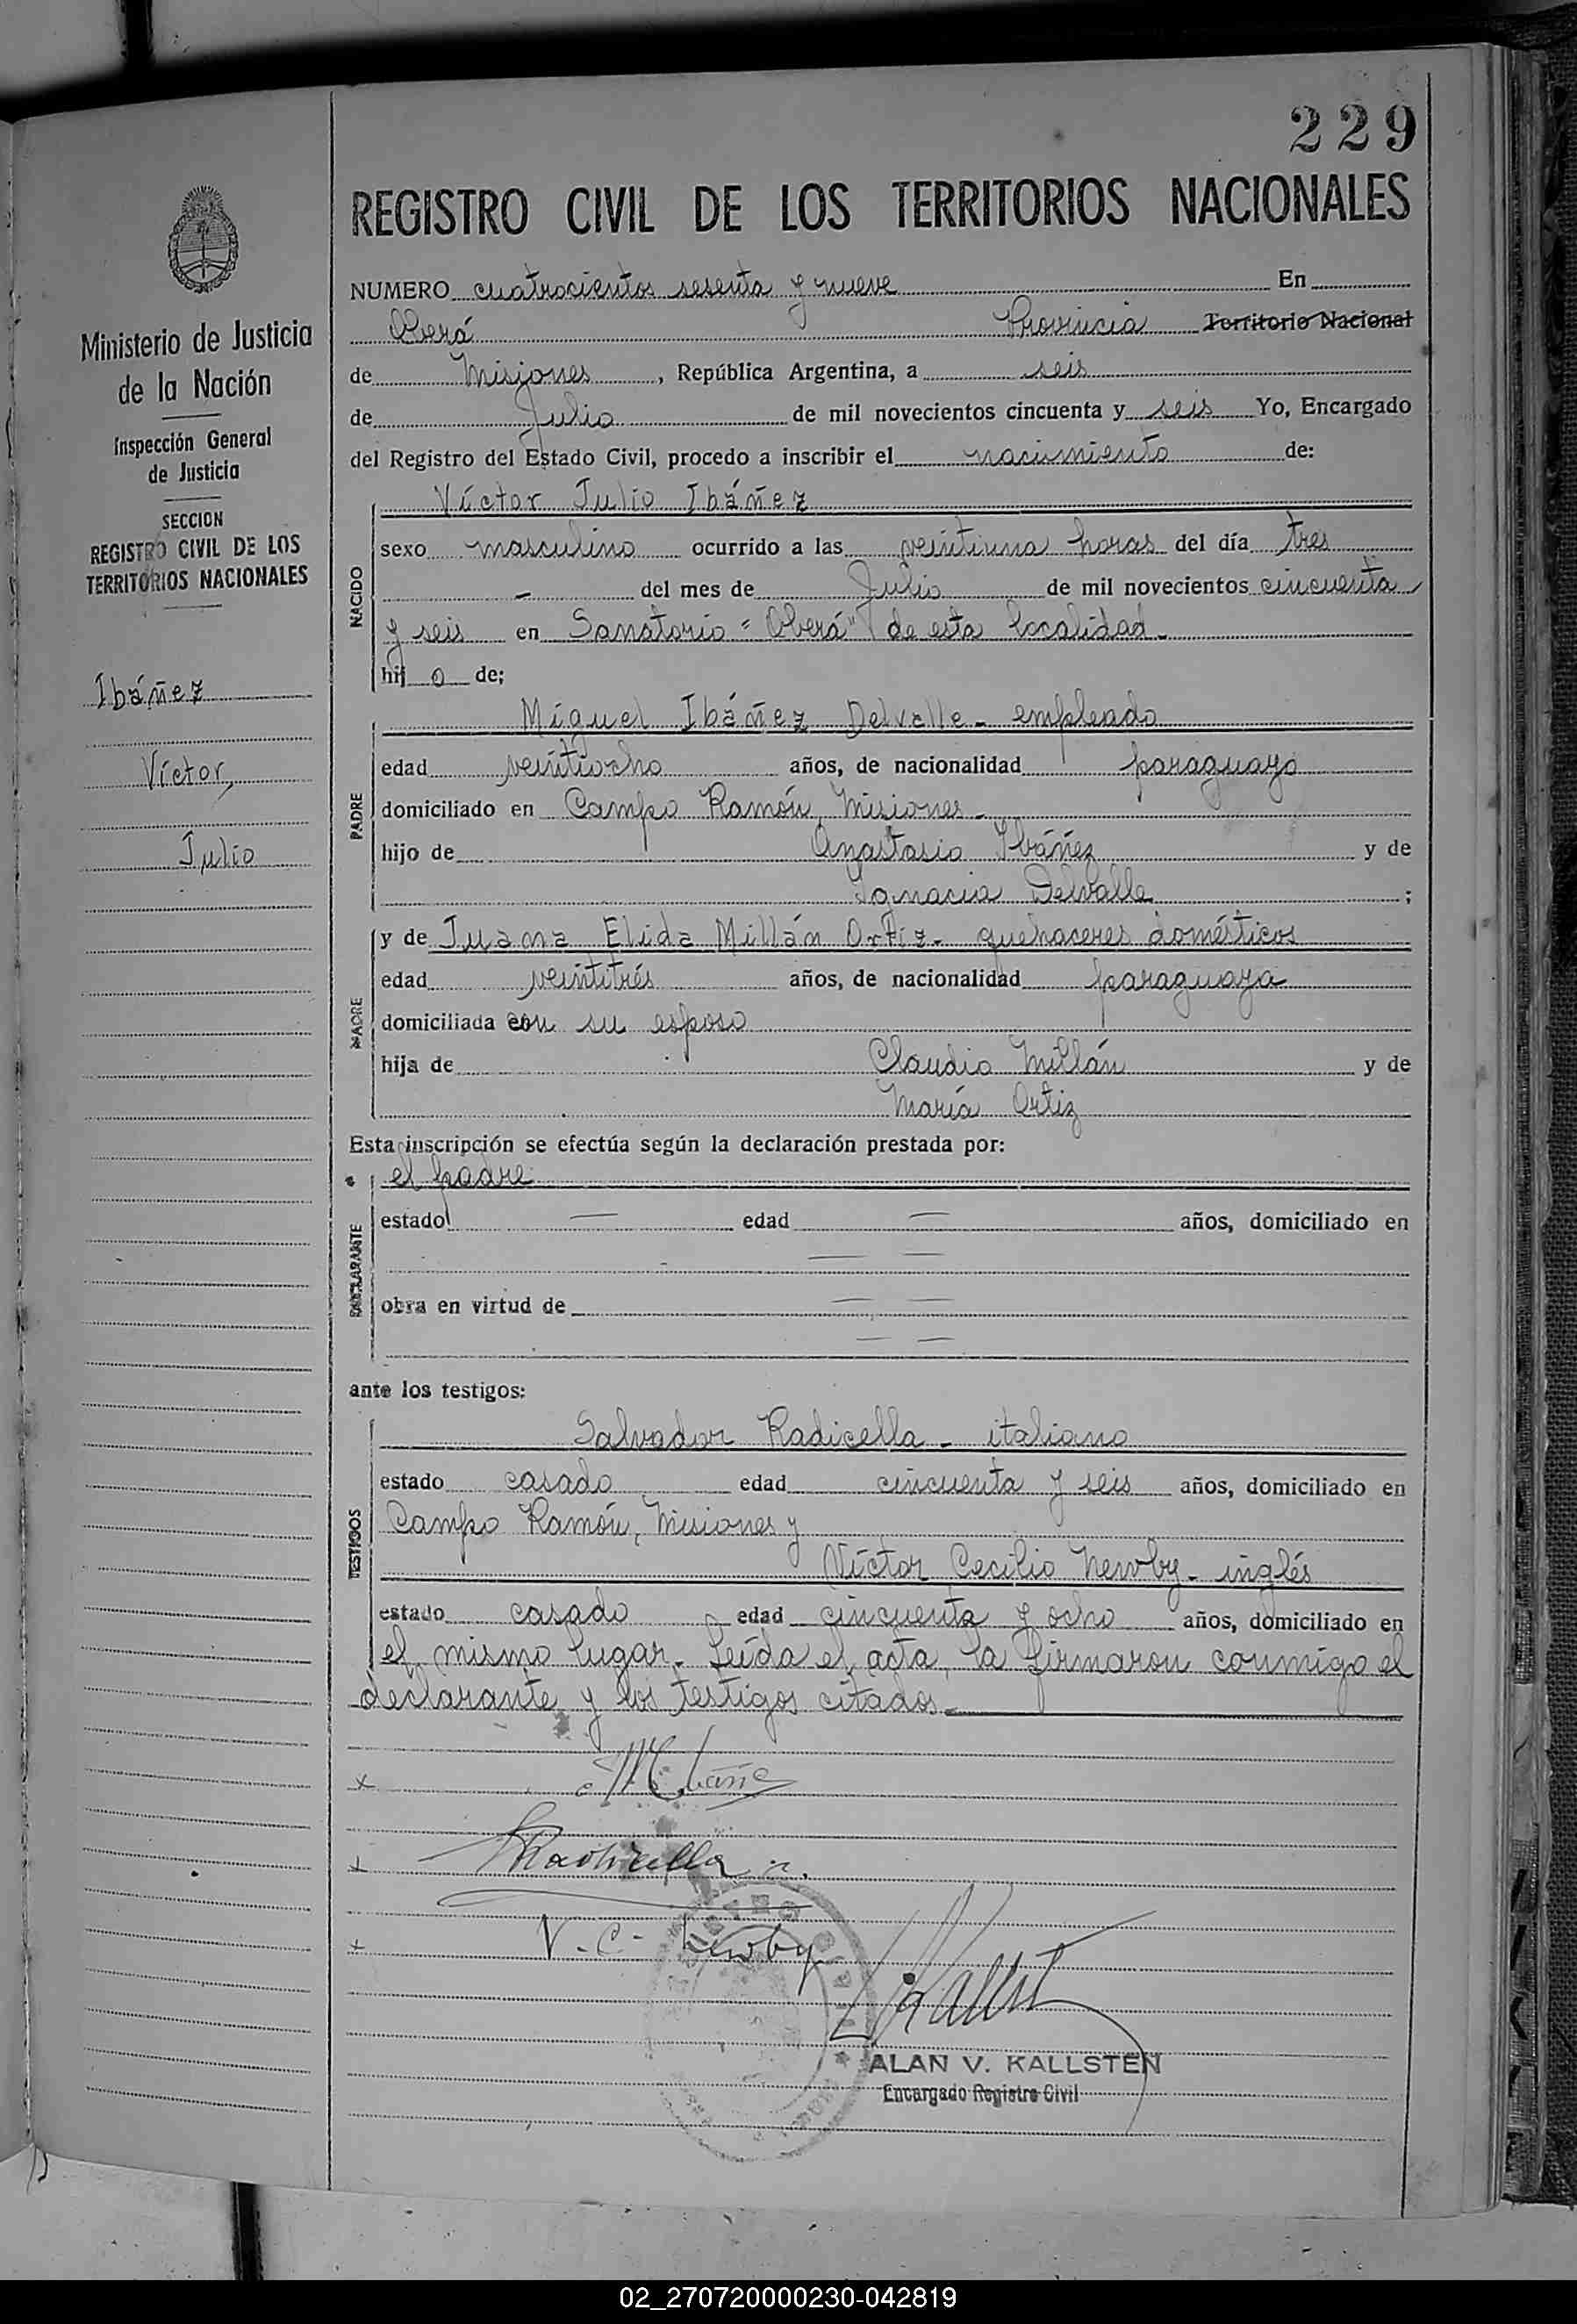 229
REGISTRO CIVIL DE LOS TERRITORIOS NACIONALES
Ministerio de Justicia
de la Nación
Inspección General
de Justicia
SECCION
REGISTRO CIVIL DE LOS
TERRITORIOS NACIONALES
Ibáñez
Víctor,
Julio
NUMERO cuatrocientos sesenta y nueve En
Oberá Provincia Territorio Nacional
de Misiones, República Argentina, a seis
de Julio de mil novecientos cincuenta y seis Yo, Encargado
del Registro del Estado Civil, procedo a inscribir el nacimiento de:
NACIDO
Víctor Julio Ibáñez
sexo masculino ocurrido a las veintiuna horas del día tres
- del mes de Julio de mil novecientos cincuenta
y seis en Sanatorio "Oberá" de esta localidad-
hijo de;
PADRE
Miguel Ibáñez Delvalle- empleado
edad veintiocho años, de nacionalidad paraguayo
domiciliado en Campo Ramón, Misiones-
hijo de Anastasio Ibáñez y de
Ignacia Delvalle ;
MADRE
y de Juana Elida Millán Ortiz- quehaceres domésticos
edad veintitrés años, de nacionalidad paraguaya
domiciliada con su esposo
hija de Claudio Millán y de
María Ortiz
Esta inscripción se efectúa según la declaración prestada por:
DECLARANTE
el padre
estado — edad — años, domiciliado en
— —
obra en virtud de — —
— —
ante los testigos:
TESTIGOS
Salvador Radicella - italiano
estado casado edad cincuenta y seis años, domiciliado en
Campo Ramón, Misiones y
Víctor Cecilio Newby- inglés
estado casado edad cincuenta y ocho años, domiciliado en
el mismo lugar- Leída el acta, la firmaron conmigo el
declarante y los testigos citados-
x
x Radicella
x V. C. Newby
ALAN V. KALLSTEN
Encargado Registro Civil
02_270720000230-042819